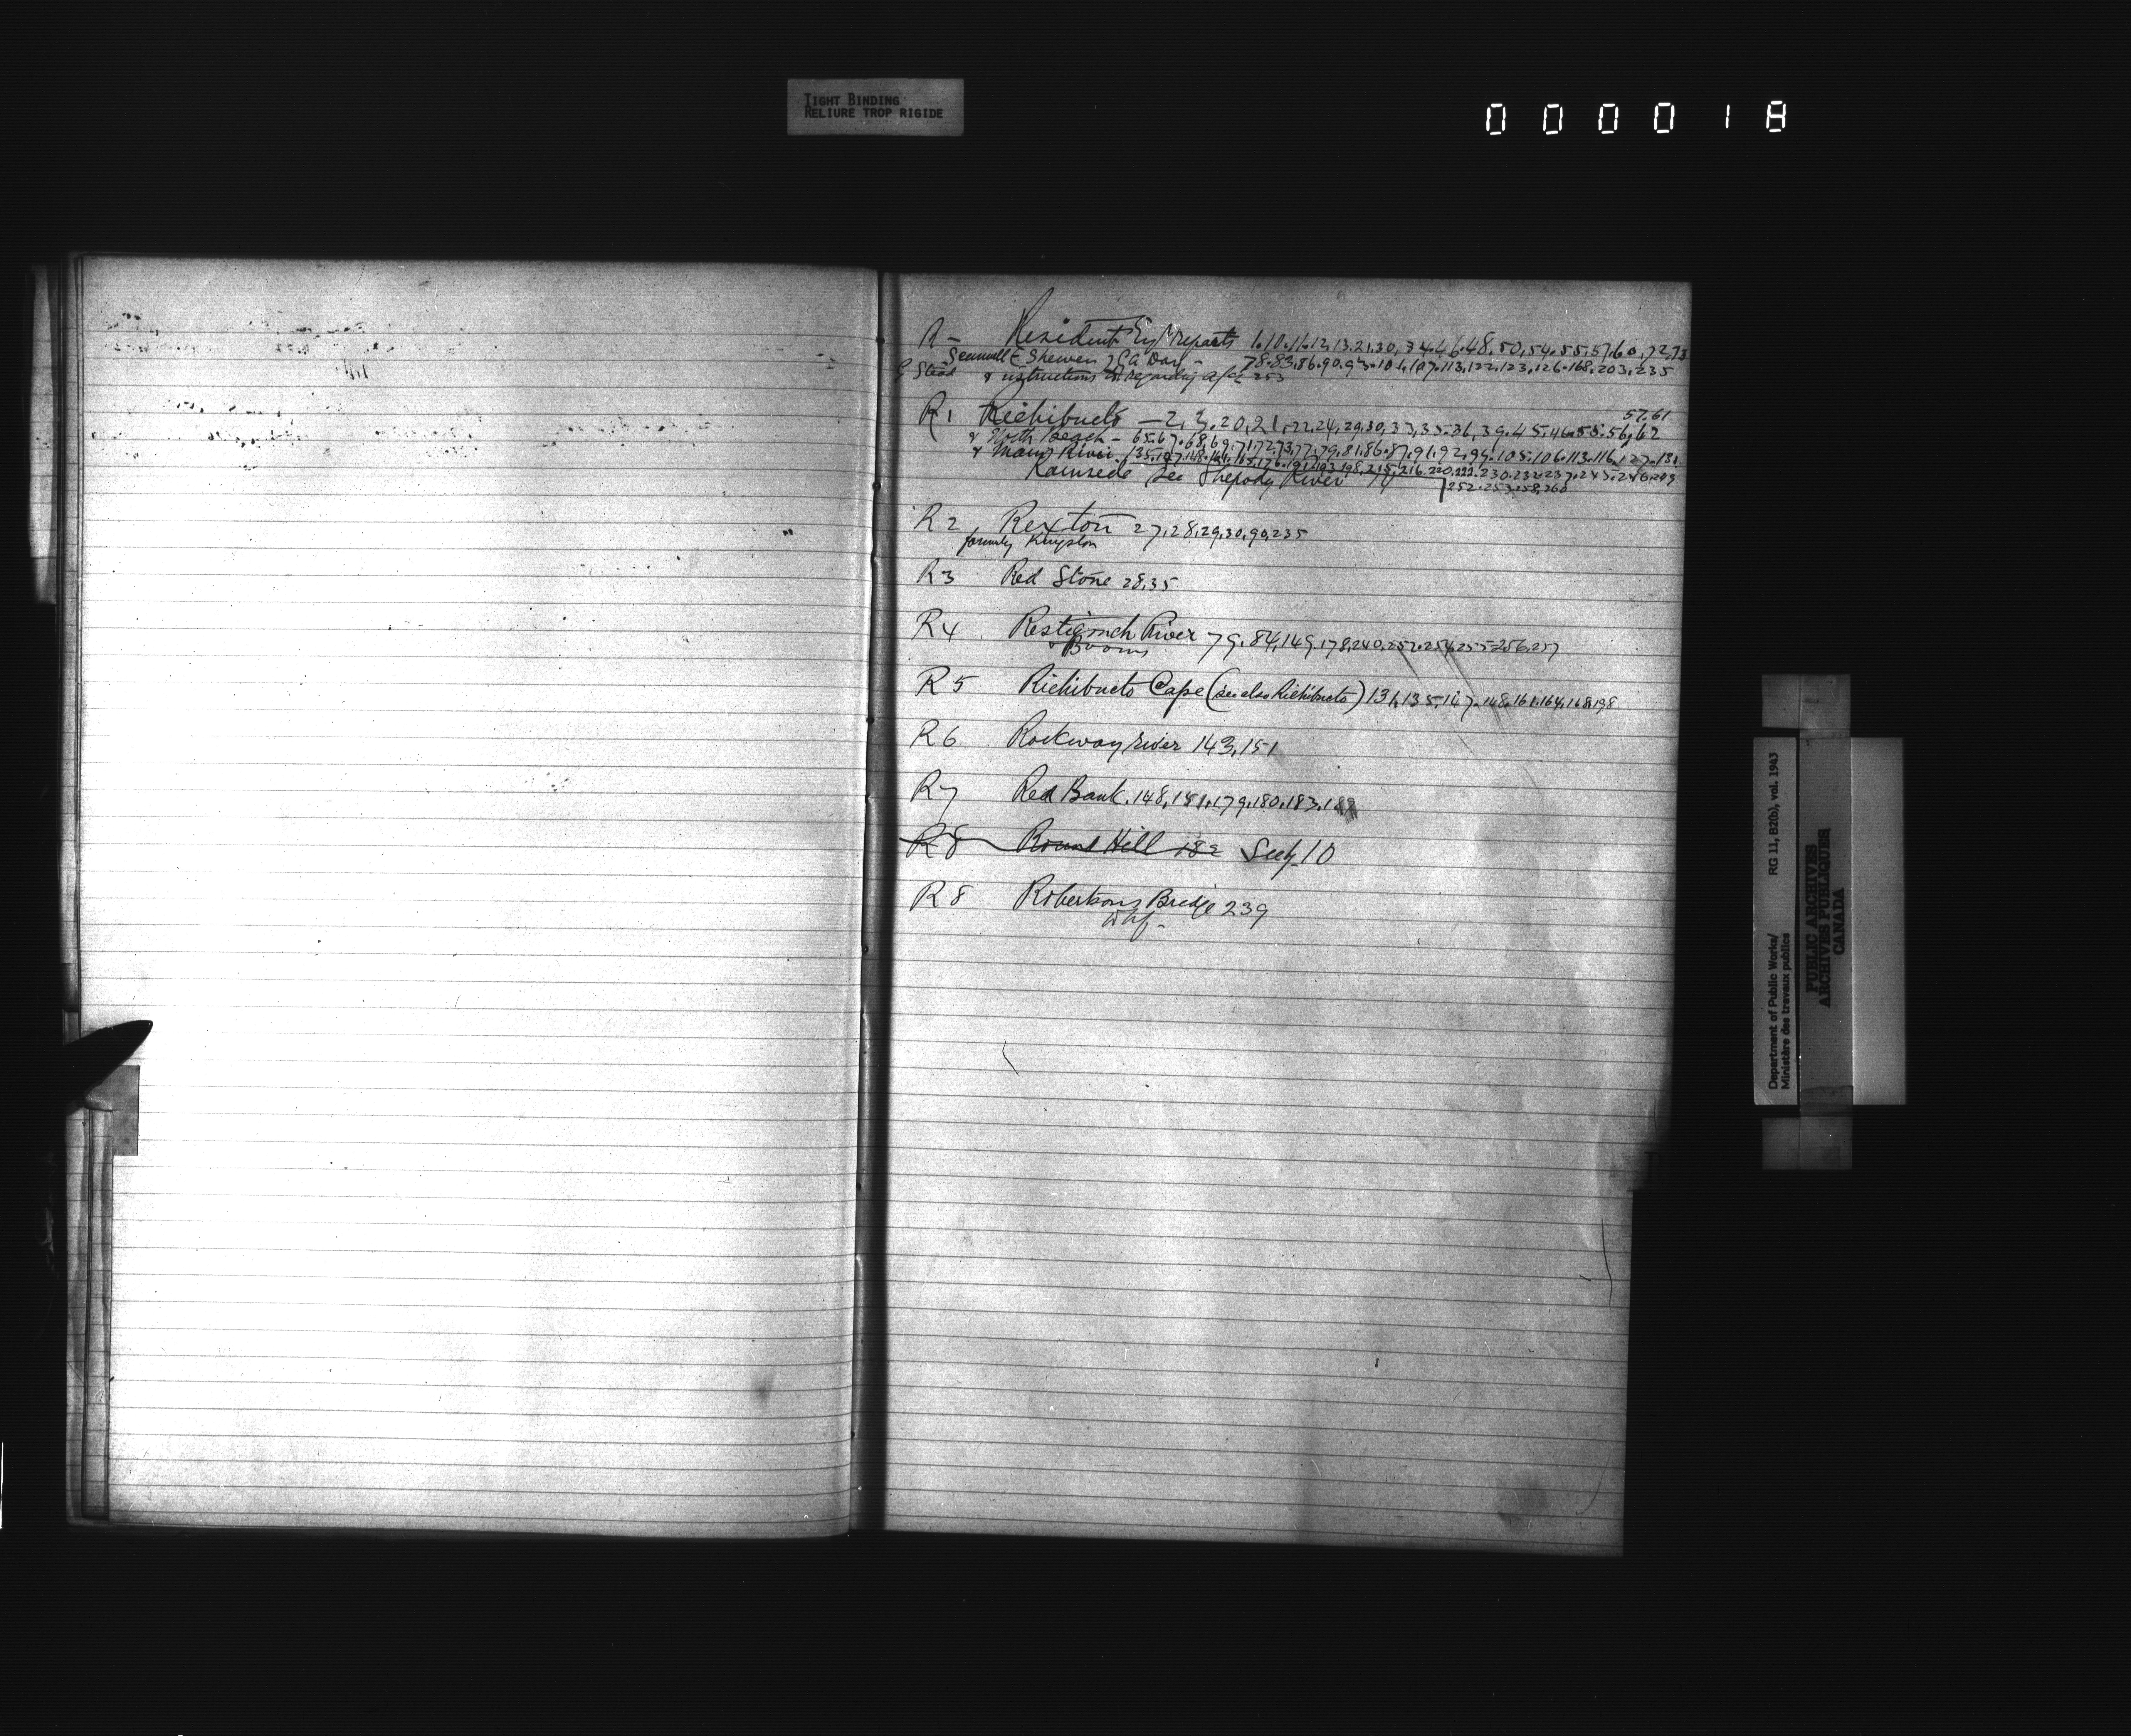 TIGHT BINDING
RELIURE TROP RIGIDE
000018
R - Resident Eng reports 1.10.11.12.13.21.30,34.46.48.50,54.55.57.60,72,73
Samuel E Shewen } G A Day - 78.83.86.90.93.101.107.113,122.123.126.168.203.235
G Stead & instructions regarding 253
57.61
R1 Richibucto - 2, 3.20,21,22.24,29.30,33,35.36,39.45.46.55.56,62
& North Beach - 65.67.68,69.71.72.73.77.79.81.86.87.91.92.99.105.106.113.116.127.131
& Main River 135.147.148.161.165.176.191.193.198.215.216.220.222.230.232.237.243.246.249
Kouisede See Shepody River
252.253.258.260
R2, Rexton 27,28,29,30,90,235
formerly Kingston
R3 Red Stone 28,35
R4 Restigouch River 79.84,149.178,240,252.254,255-256,257
& Booms
R5 Richibucto Cape (see also Richibucto) 131,135,147.148.161.164,168.198
R6 Rockway river 143,151
R7 Red Bank.148,151.179.180.183.188
R8 Round Hill 182 See G 10
R8 Robertsons Bridge 239
Whf-
Department of Public Works/ RG 11, B2(b), vol. 1943
Ministère des travaux publics
PUBLIC ARCHIVES
ARCHIVES PUBLIQUES
CANADA